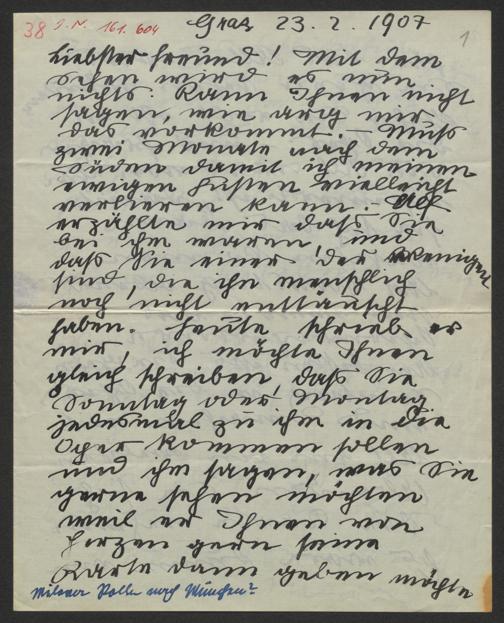 38 I.N. 161.604
Graz 23.2.1907
1
Liebster Freund! Mit dem
sehen wird es nun
nichts. Kann Ihnen nicht
sagen, wie arg mir
das vorkommt. – Muss
zwei Monate nach dem
Süden damit ich meinen
ewigen Husten vielleicht
verlieren kann.
erzählte mir daß Sie
bei ihm waren, und
daß Sie einer der wenigen
sind, die ihn menschlich
noch nicht enttäuscht
haben. Heute schrieb er
mir, ich möchte Ihnen
gleich schreiben, daß Sie
Sonntag oder Montag
jedesmal zu ihm in die
Oper kommen sollen
und ihm sagen, was Sie
gerne sehen möchten
weil er Ihnen von
Herzen gern seine
Karte dann geben möchte
Roller nach München?